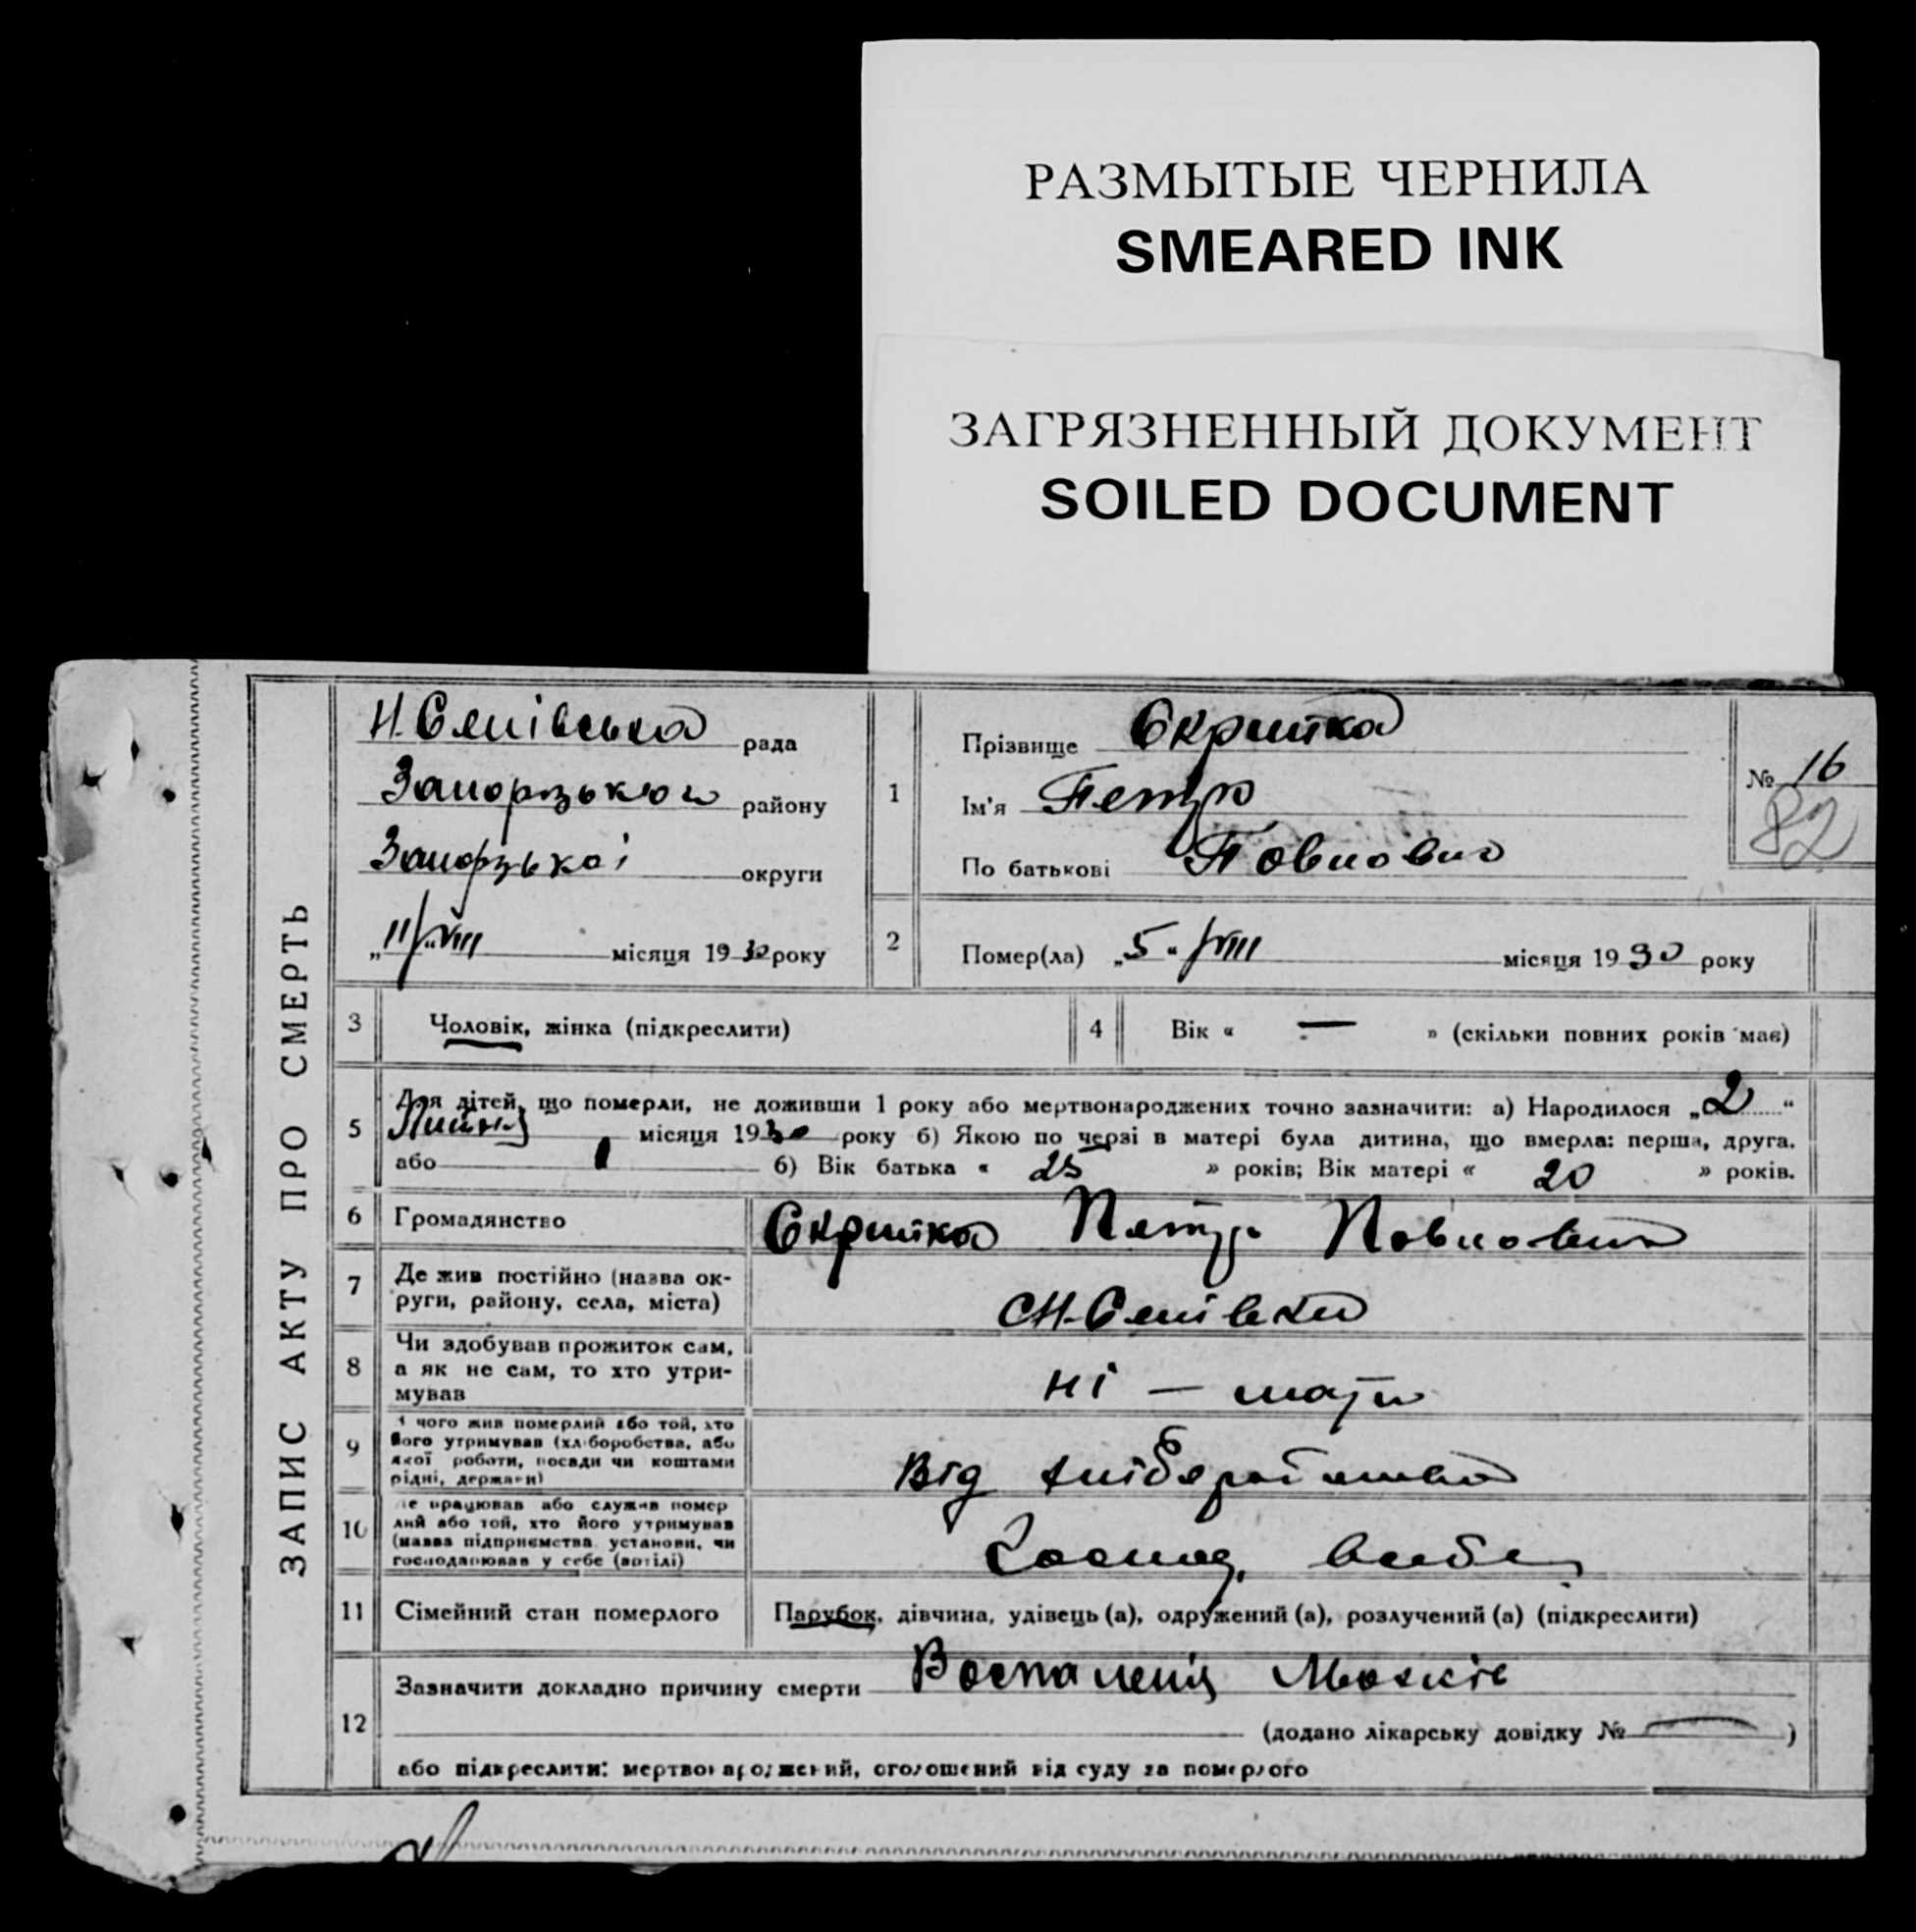 РАЗМЫТЫЕ ЧЕРНИЛА
SMEARED INK
ЗАГРЯЗНЕННЫЙ ДОКУМЕНТ
SOILED DOCUMENT
ЗАПИС АКТУ ПРО СМЕРТЬ
рада
району
округи
„11/„VIII місяця 1930 року
1
Прізвище Скрипка
Ім'я Петро
По батькові Павлович
№ 16
82
2
Помер(ла) „5“ /VIII місяця 1930 року
3 Чоловік, жінка (підкреслити)
4 Вік « — » (скільки повних років має)
5 Для дітей, що померли, не доживши 1 року або мертвонароджених точно зазначити: а) Народилося „2“
місяця 1930 року б) Якою по черзі в матері була дитина, що вмерла: перша, друга.
або 1 б) Вік батька « 25 » років; Вік матері « 20 » років.
6 Громадянство Скрипка Петро Павлович
7 Де жив постійно (назва ок-
руги, району, села, міста)
8 Чи здобував прожиток сам,
а як не сам, то хто утри-
мував
ні — мати
9 З чого жив померлий або той, хто
його утримував (хліборобства, або
якої роботи, посади чи коштами
рідні, держави)
Від
10 Де працював або служив помер
лий або той, хто його утримував
(назва підприємства установи, чи
господарював у себе (артілі)
Господ.
11 Сімейний стан померлого Парубок, дівчина, удівець (а), одружений (а), розлучений (а) (підкреслити)
12 Зазначити докладно причину смерти Воспаленія
(додано лікарську довідку № — )
або підкреслити: мертвонароджений, оголошений від суду за померлого